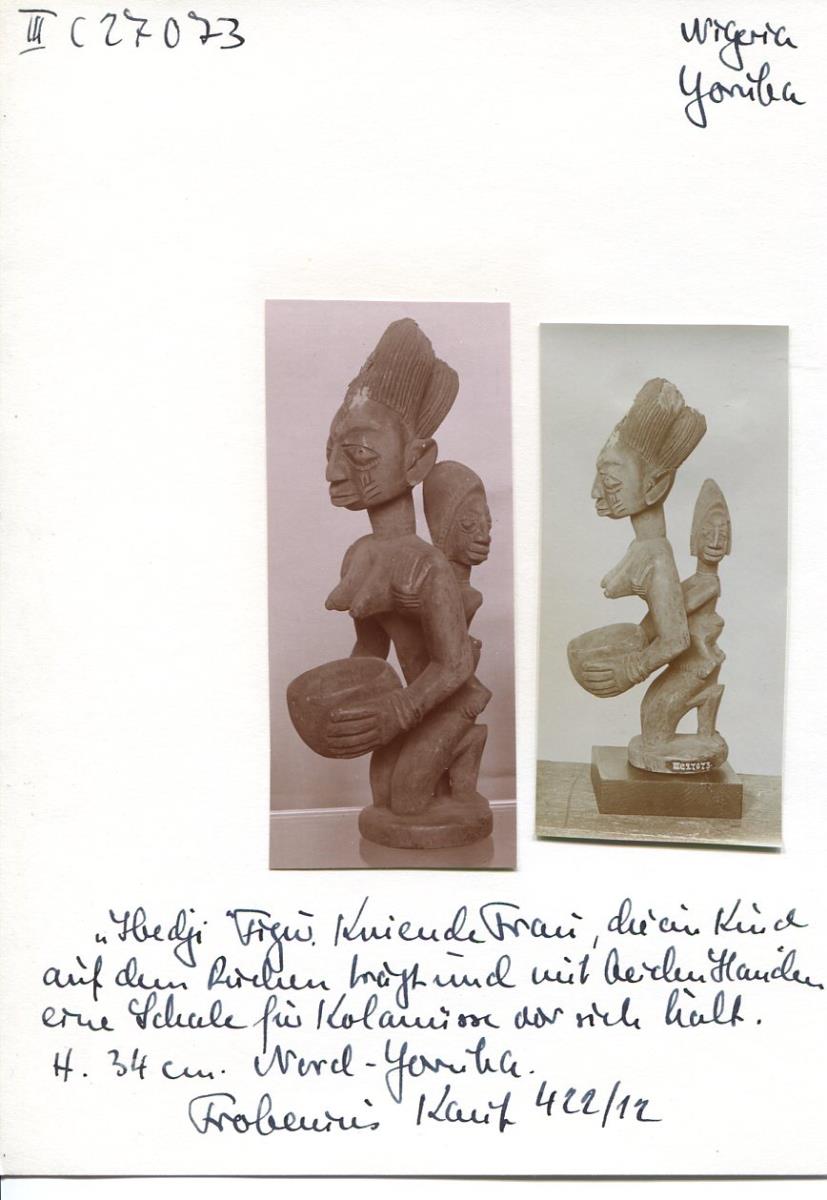 III C 27073
Nigeria
Yoruba
III C 27073
„Ibedji" Figur. Kniende Frau, die ein Kind
auf dem Rücken trägt und mit beiden Händen
eine Schale für Kolanüsse vor sich hält.
H. 34 cm. Nord-Yoruba.
Frobenius Kauf 422/12